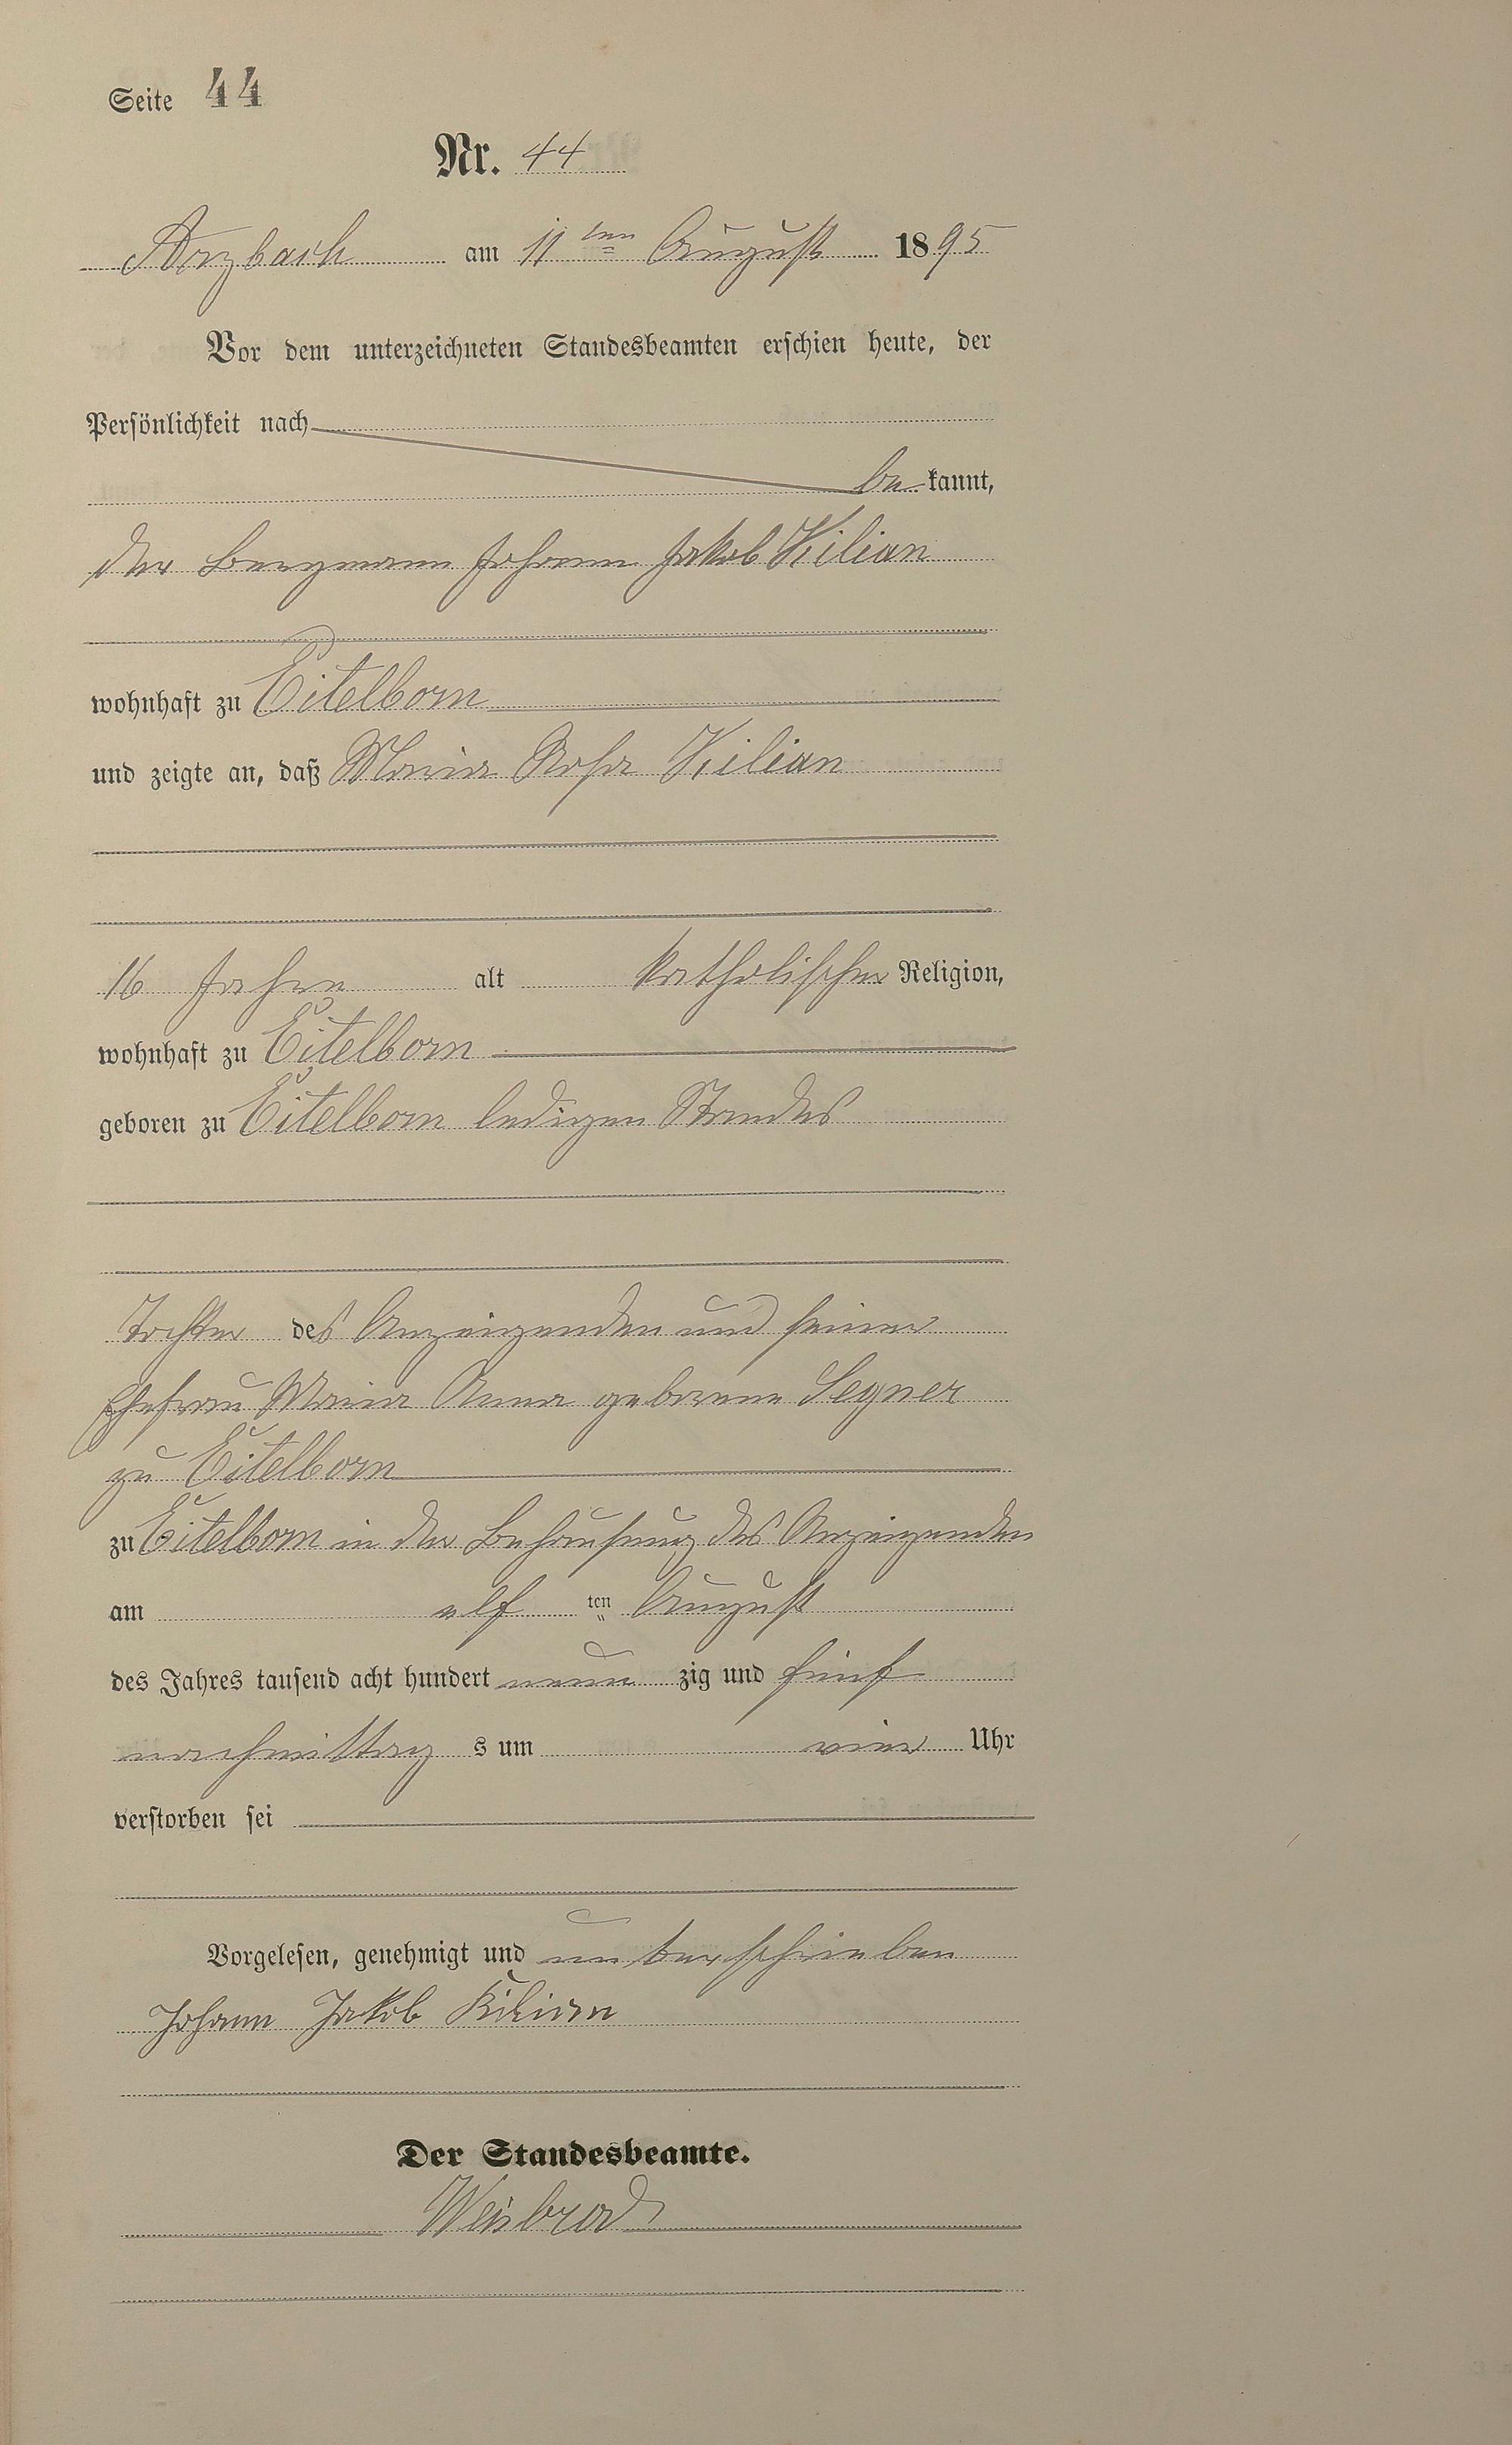 Seite 44
Nr. 44
Arzbach am 11ten August 1895
Vor dem unterzeichneten Standesbeamten erschien heute, der
Persönlichkeit nach
be kannt,
der Bergmann Johann Jakob Kilian
wohnhaft zu Eitelborn
und zeigte an, daß Maria Rosa Kilian
16 Jahre alt katholischer Religion,
wohnhaft zu Eitelborn
geboren zu Eitelborn ledigen Standes
Tochter des Anzeigenden und seiner
Ehefrau Maria Anna geborene Segner
zu Eitelborn
zu Eitelborn in der Behausung des Anzeigenden
am elf ten August
des Jahres tausend acht hundert neun zig und fünf
nachmittag s um vier Uhr
verstorben sei
Vorgelesen, genehmigt und unterschrieben
Johann Jakob Kilian
Der Standesbeamte.
Weisbrod